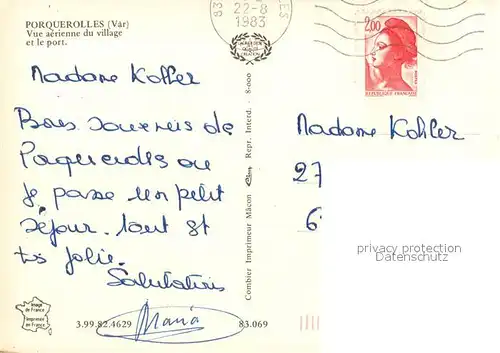 PORQUEROLLES (Var)
Vue aérienne du village
et le port.
83
22-8
1983
2,00
REPUBLIQUE FRANÇAISE
Madame Kohler
Bons souvenirs de
Porquerolles où
je passe un petit
séjour. Tout est
très jolie.
Salutations
Maria
Madame Kohler
27
6
privacy protection
Datenschutz
Combier Imprimeur Mâcon Repr. Interd. 8-000
Image
de France
Imprimée
en France
3.99.82.4629
83.069